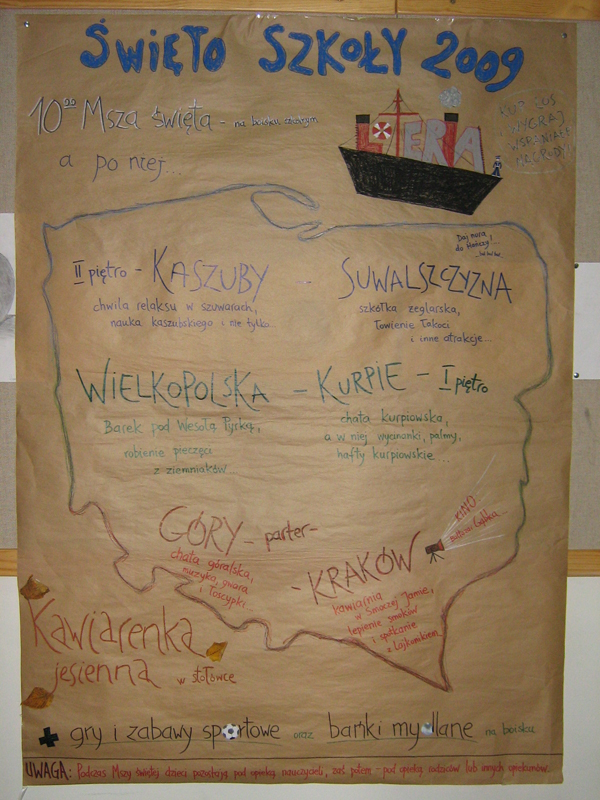 ŚWIĘTO SZKOŁY 2009
10⁰⁰ Msza święta - na boisku szkolnym
a po niej...
LOTERIA
KUP LOS
I WYGRAJ
WSPANIAŁE
NAGRODY!
Daj nura
do Hańczy!
II piętro - KASZUBY - SUWALSZCZYZNA
chwila relaksu w szuwarach,
nauka kaszubskiego i nie tylko...
szkółka żeglarska,
łowienie łakoci
i inne atrakcje...
WIELKOPOLSKA - KURPIE - I piętro
Barek pod Wesołą Pyrką,
robienie pieczęci
z ziemniaków
chata kurpiowska,
a w niej wycinanki, palmy,
hafty kurpiowskie...
GÓRY - parter - - KRAKÓW
chata góralska,
muzyka, gwara
i łoscypki
KINO
kawiarnia
w Smoczej Jamie,
lepienie smoków
i spotkanie
z Lajkonikiem
Kawiarenka
jesienna w stołówce
+ gry i zabawy sportowe oraz bańki mydlane na boisku
UWAGA: Podczas Mszy świętej dzieci pozostają pod opieką nauczycieli, zaś potem - pod opieką rodziców lub innych opiekunów.